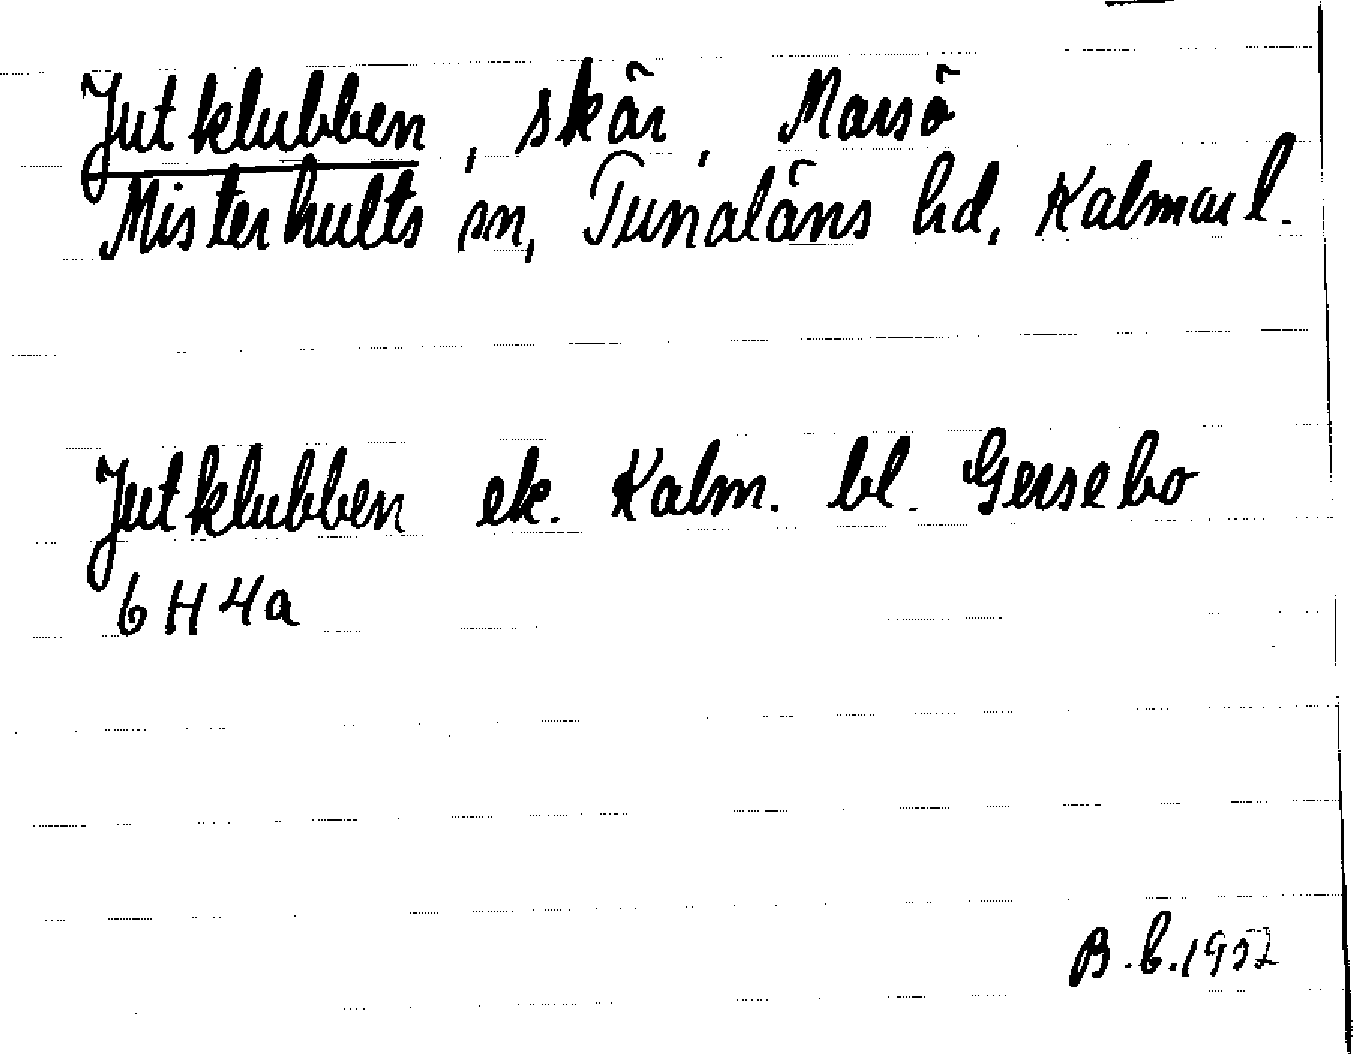 Jutklubben, skär, Marsö
Misterhults sn, Tunaläns hd, Kalmar l.
Jutklubben ek. Kalm. bl. Gersebo
6 H 4a
B.b. 1952